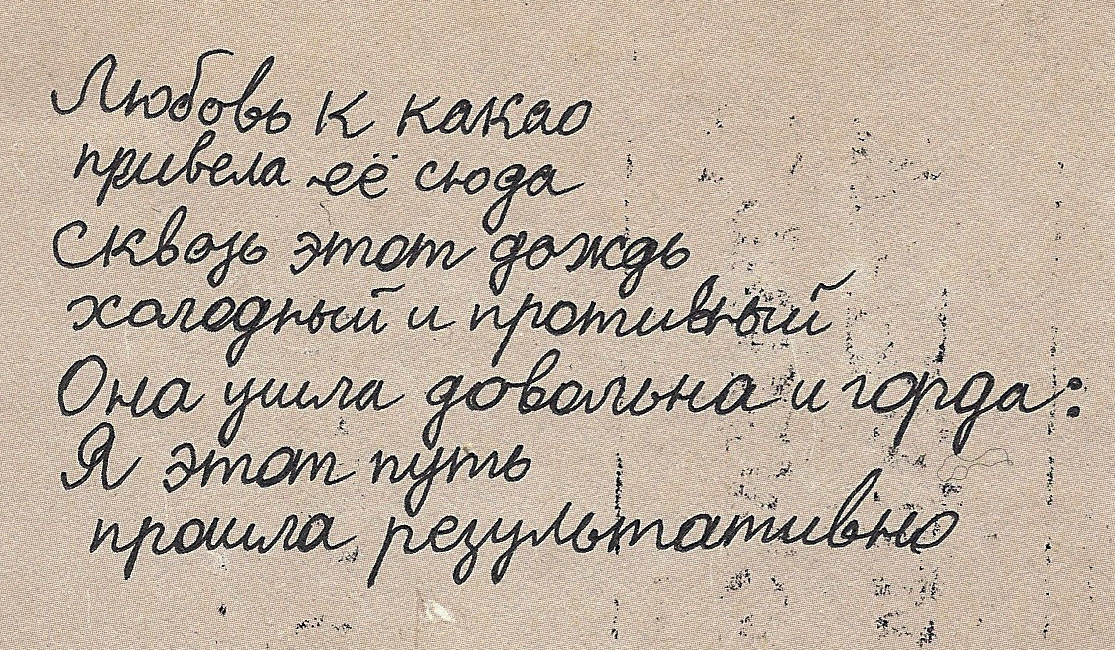 Любовь к какао
привела её сюда
Сквозь этот дождь
холодный и противный
Она ушла довольна и горда:
Я этот путь
прошла результативно